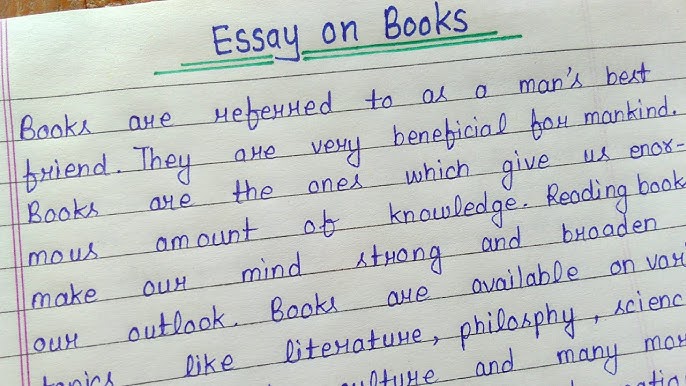 Essay on Books
Books are referred to as a man's best
friend. They are very beneficial for mankind.
Books are the ones which give us enor-
mous amount of knowledge. Reading book
make our mind strong and broaden
our outlook. Books are available on vari
topics like literature, philosphy, scienc
culture and many mor